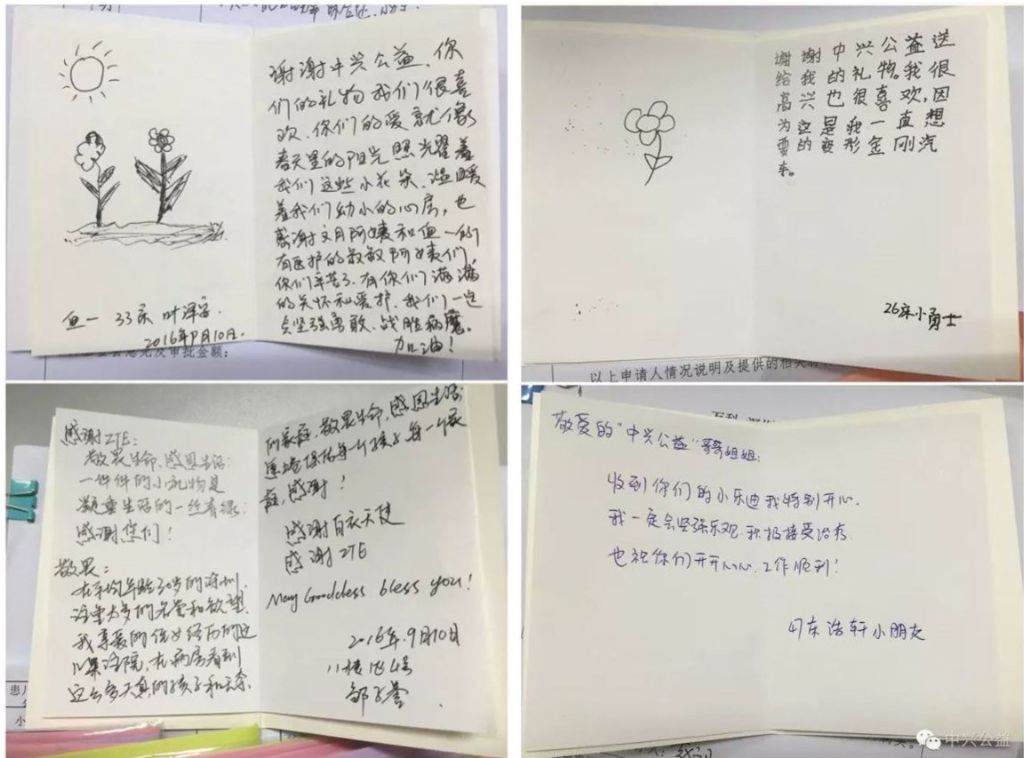 谢谢中兴公益,你
们的礼物我们很喜
欢,你们的爱就像
春天里的阳光照耀着
我们这些小花朵,温暖
着我们幼小的心房,也
感谢文月阿姨和血一的
有医护的叔叔阿姨们
你们辛苦了,有你们满满
的关怀和爱护,我们一定
会坚强勇敢、战胜病魔。
加油!
血一 33床
2016年9月10日.
谢谢中兴公益送
给我的礼物。我很
高兴也很喜欢,因
为这是我一直想
要的变形金刚汽
车。
26床小勇士
以上申请人情况说明及提供的相关
感谢ZTE:
敬畏生命,感恩生活;
一件件的小礼物是
凝重生活的一丝清凉;
感谢您们!
敬畏:
在平均年龄30岁的深圳,
的名誉和欲望.
我亲爱的侄女经历的这
儿童住院,在病房看到
这么多天真的孩子和
的家庭,敬畏生命,感恩生活;
保佑每一个孩子每一个家
庭,感谢!
感谢白衣天使
感谢ZTE
May Goddess bless you!
2016年.9月10日
八楼
敬爱的“中兴公益”哥哥姐姐:
收到你们的小乐迪我特别开心.
我一定会坚强乐观.积极接受治疗.
也祝你们开开心心.工作顺利!
47床浩轩小朋友
中兴公益